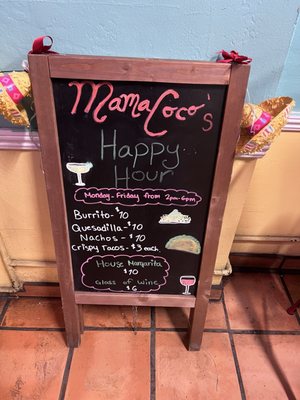 MamaCoco's
Happy
Hour
Monday-Friday from 2pm-6pm
Burrito-$10
Quesadilla-$10
Nachos-$10
Crispy Tacos-$3 each
House Margarita
$10
Glass of Wine
$6